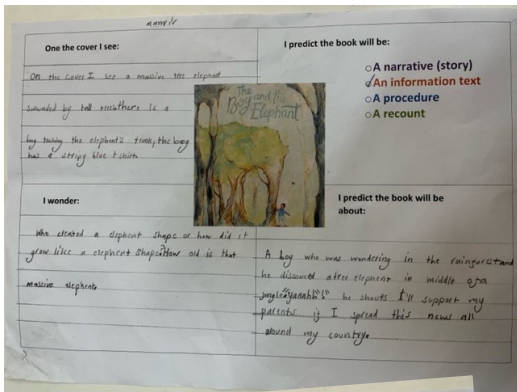 One the cover I see:
On the cover I see a massive tree elephant
surounded by tall trees there is a
boy touching the elephant's trunk, the boy
has a stripy blue t shirt.
I predict the book will be:
A narrative (story)
An information text
A procedure
A recount
The
Boy and the
Elephant
I wonder:
Who created a elephant shape or how did it
grow like a elephant shape? How old is that
massive elephant.
I predict the book will be
about:
A boy who was wondering in the rainforest and
he discoverd a tree elephant in middle of a
jungle "yaaahh"! he shouts I'll support my
parents if I spread this news all
around my country.